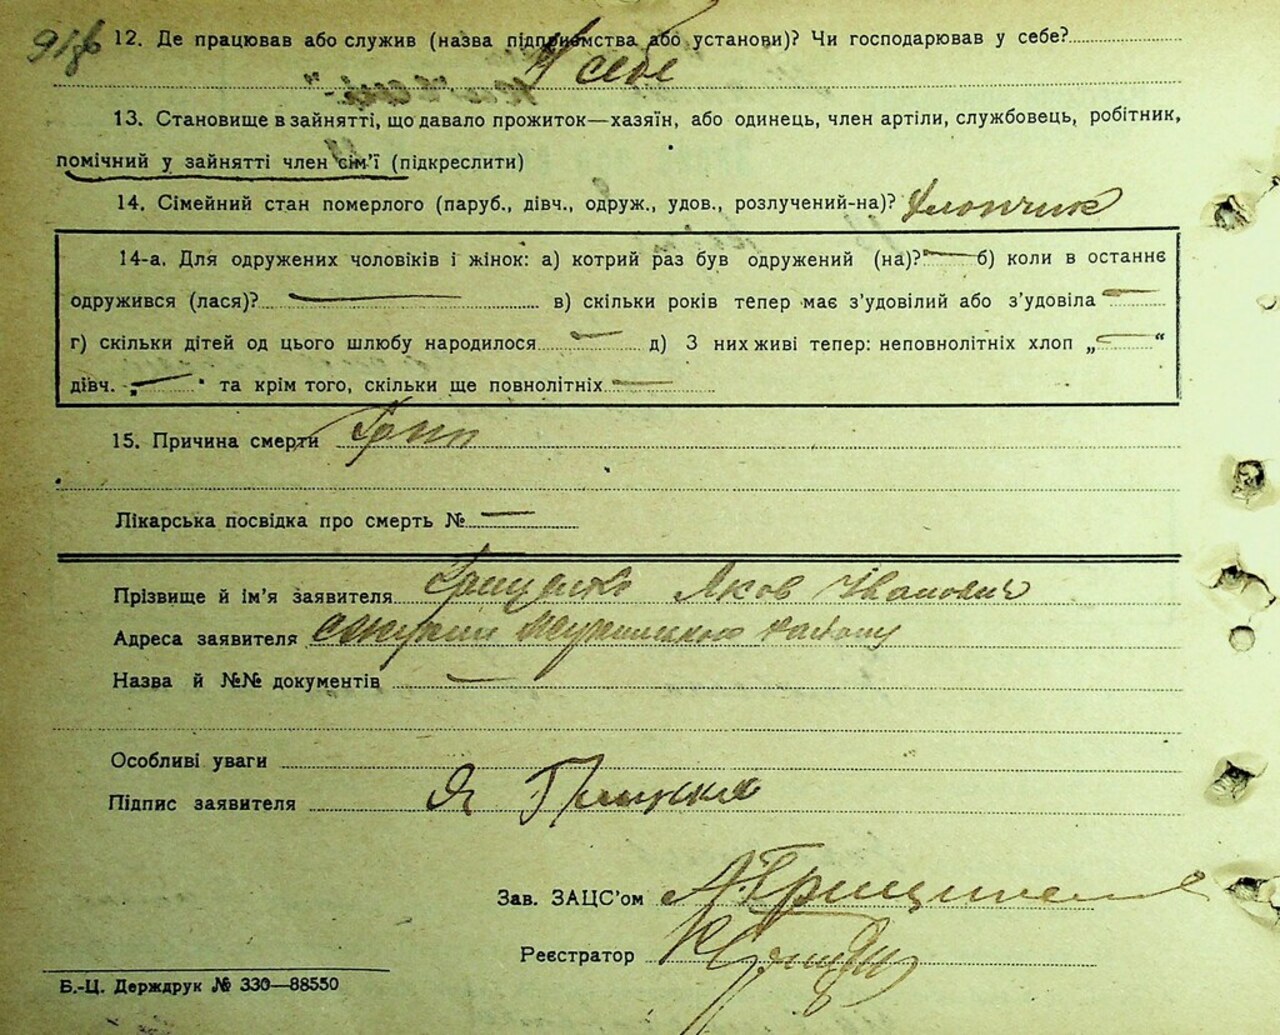 12. Де працював або служив (назва підприємства або установи)? Чи господарював у себе?
У себе
13. Становище в зайнятті, що давало прожиток—хазяїн, або одинець, член артіли, службовець, робітник,
помічний у зайнятті член сім'ї (підкреслити)
14. Сімейний стан померлого (паруб., дівч., одруж., удов., розлучений-на)? Хлопчик
14-а. Для одружених чоловіків і жінок: а) котрий раз був одружений (на)? — б) коли в останнє
одружився (лася)? — в) скільки років тепер має з'удовілий або з'удовіла —
г) скільки дітей од цього шлюбу народилося — д) З них живі тепер: неповнолітніх хлоп „—“
дівч. „—“ та крім того, скільки ще повнолітніх —
15. Причина смерти Грип
Лікарська посвідка про смерть № —
Прізвище й ім'я заявителя Грищенко Яков Іванович
Адреса заявителя району
Назва й №№ документів —
Особливі уваги
Підпис заявителя Я
Зав. ЗАЦС'ом
Реєстратор
Б.-Ц. Держдрук № 330—88550